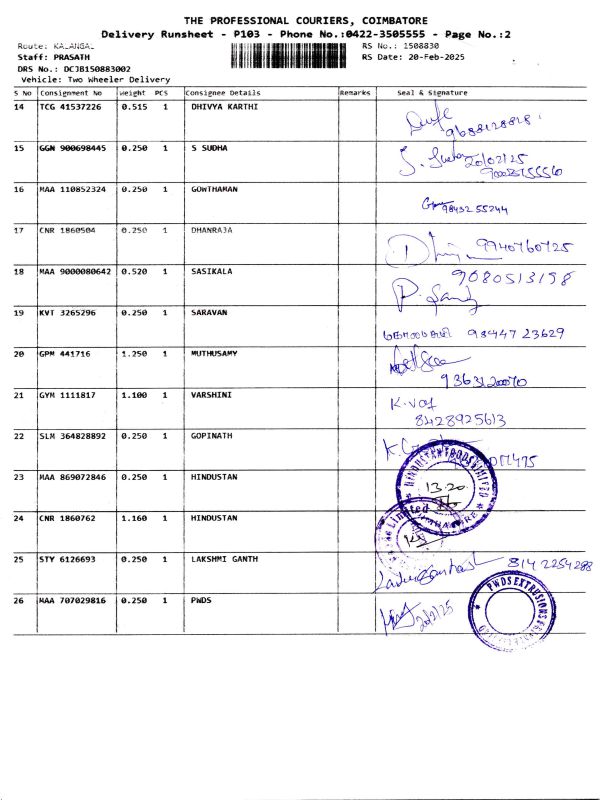 THE PROFESSIONAL COURIERS, COIMBATORE
Delivery Runsheet - P103 - Phone No.:0422-3505555 - Page No.:2
Route: KALANGAL RS No.: 1508830
Staff: PRASATH RS Date: 20-Feb-2025
DRS No.: DCJB150883002
Vehicle: Two Wheeler Delivery
S No Consignment No Weight PCS Consignee Details Remarks Seal & Signature
14 TCG 41537226 0.515 1 DHIVYA KARTHI
9688128828
15 GGN 900698445 0.250 1 S SUDHA
20/02/25
16 MAA 110852324 0.250 1 GOWTHAMAN
98432 55244
17 CNR 1860504 0.250 1 DHANRAJA
9940760725
18 MAA 9000080642 0.520 1 SASIKALA
9080513198
19 KVT 3265296 0.250 1 SARAVAN
98447 23629
20 GPM 441716 1.250 1 MUTHUSAMY
9363120070
21 GYM 1111817 1.100 1 VARSHINI
8428925613
22 SLM 364828892 0.250 1 GOPINATH
23 MAA 869072846 0.250 1 HINDUSTAN
13.20
24 CNR 1860762 1.160 1 HINDUSTAN
Limited
25 STY 6126693 0.250 1 LAKSHMI GANTH
814 2254288
26 MAA 707029816 0.250 1 PWDS
20/2/25
PWDS EXTRUSIONS